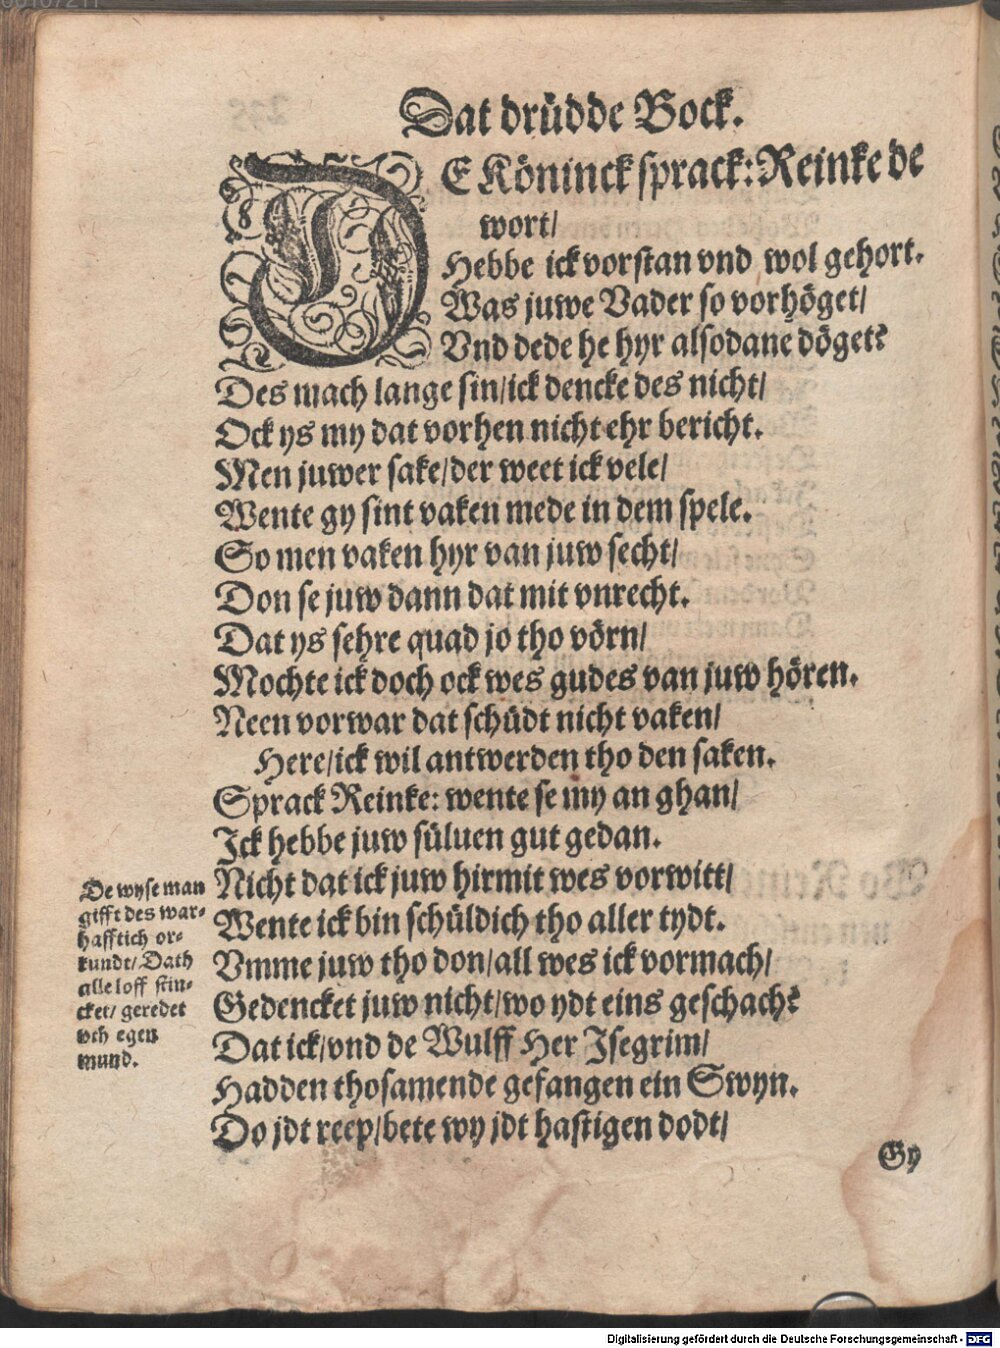 Dat drüdde Bock.
DE Köninck sprack: Reinke de
wort/
Hebbe ick vorstan vnd wol gehort.
Was juwe Vader so vorhöget/
Vnd dede he hyr alsodane döget?
Des mach lange sin/ ick dencke des nicht/
Ock ys my dat vorhen nicht ehr bericht.
Men juwer sake/ der weet ick vele/
Wente gy sint vaken mede in dem spele.
So men vaken hyr van juw secht/
Don se juw dann dat mit vnrecht.
Dat ys sehre quad jo tho vörn/
Mochte ick doch ock wes gudes van juw hören.
Neen vorwar dat schüdt nicht vaken/
Here/ ick wil antwerden tho den saken.
Sprack Reinke: wente se my an ghan/
Ick hebbe juw süluen gut gedan.
Nicht dat ick juw hirmit wes vorwitt/
Wente ick bin schüldich tho aller tydt.
Vmme juw tho don/ all wes ick vormach/
Gedencket juw nicht/ wo ydt eins geschach?
Dat ick/ vnd de Wulff Her Isegrim/
Hadden thosamende gefangen ein Swyn.
Do jdt reep/ bete wy jdt hastigen dodt/
Gy
De wyse man
gifft des war-
hafftich or-
kundt/ Dath
alle loff stin-
cket/ geredet
vth egen
mund.
Digitalisierung gefördert durch die Deutsche Forschungsgemeinschaft - DFG